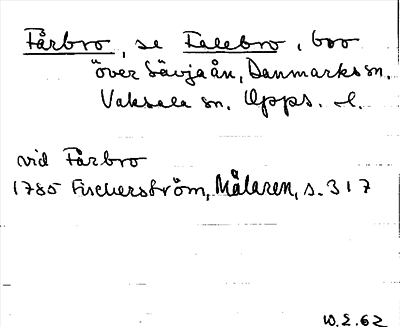 Fårbro, se Falebro, bro
över Sävjaån, Danmarks sn.
Vaksala sn. Upps. l.
vid Fårbro
1785 Fischerström, Mälaren, s. 317
W.E. 62